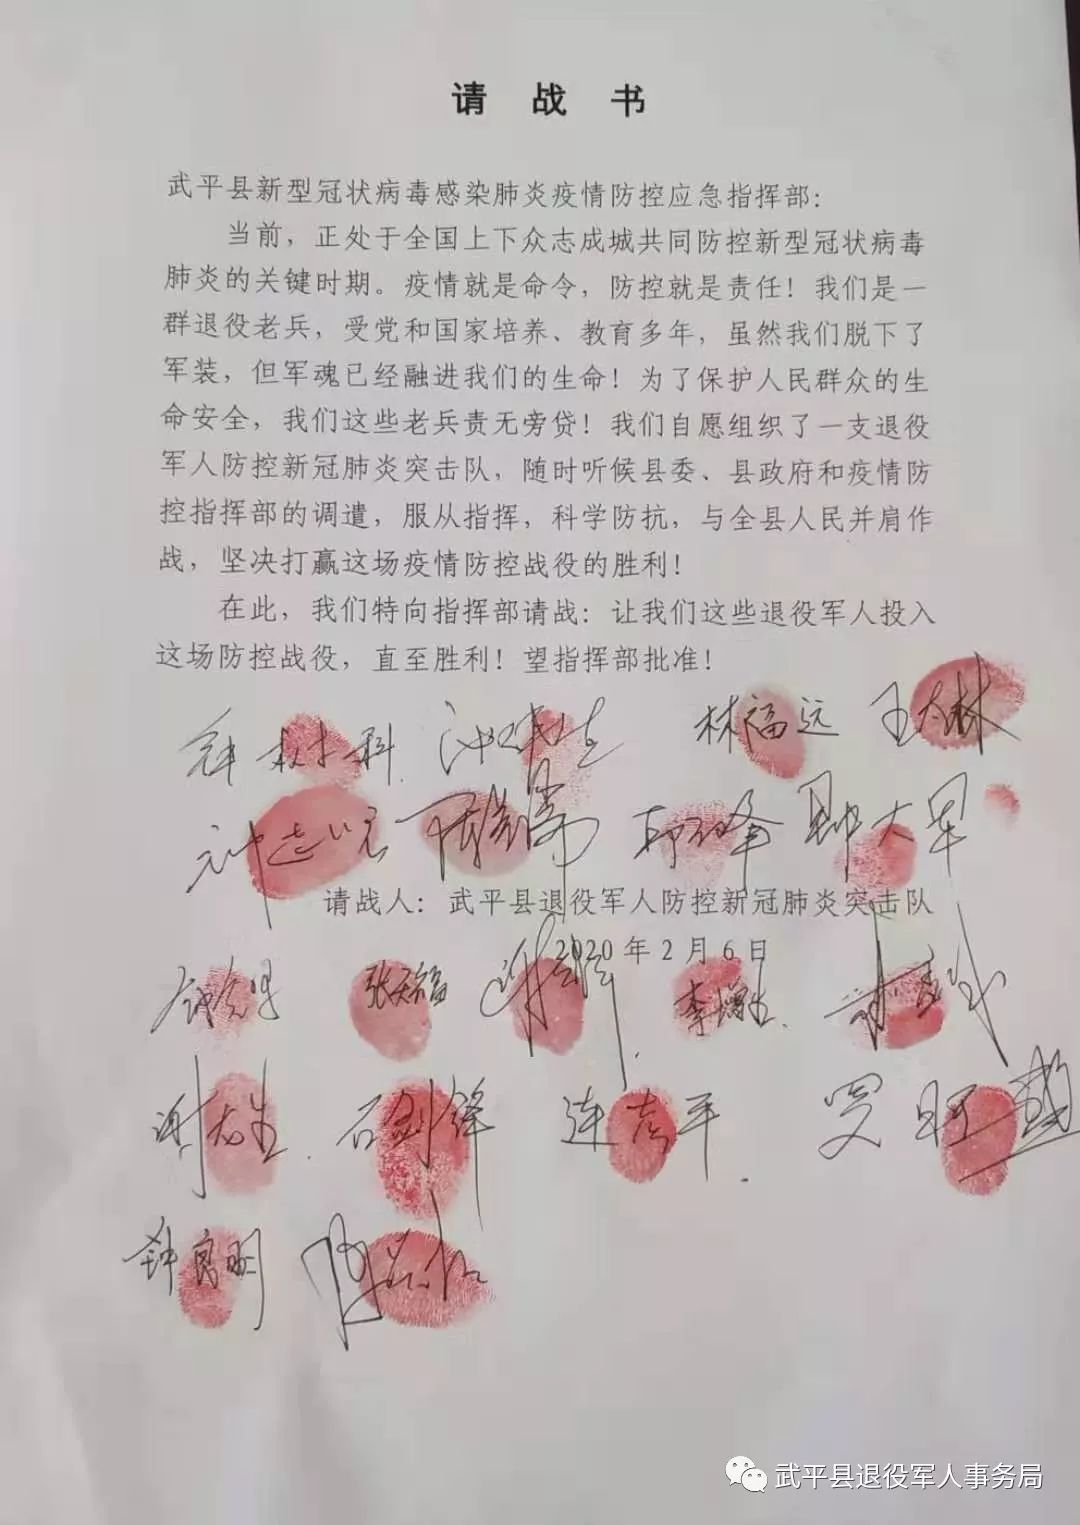 请战书
武平县新型冠状病毒感染肺炎疫情防控应急指挥部：
当前，正处于全国上下众志成城共同防控新型冠状病毒
肺炎的关键时期。疫情就是命令，防控就是责任！我们是一
群退役老兵，受党和国家培养、教育多年，虽然我们脱下了
军装，但军魂已经融进我们的生命！为了保护人民群众的生
命安全，我们这些老兵责无旁贷！我们自愿组织了一支退役
军人防控新冠肺炎突击队，随时听候县委、县政府和疫情防
控指挥部的调遣，服从指挥，科学防抗，与全县人民并肩作
战，坚决打赢这场疫情防控战役的胜利！
在此，我们特向指挥部请战：让我们这些退役军人投入
这场防控战役，直至胜利！望指挥部批准！
林福远 王太林
请战人：武平县退役军人防控新冠肺炎突击队
2020年2月6日
张天福 李增生
石剑锋
钟良明
武平县退役军人事务局